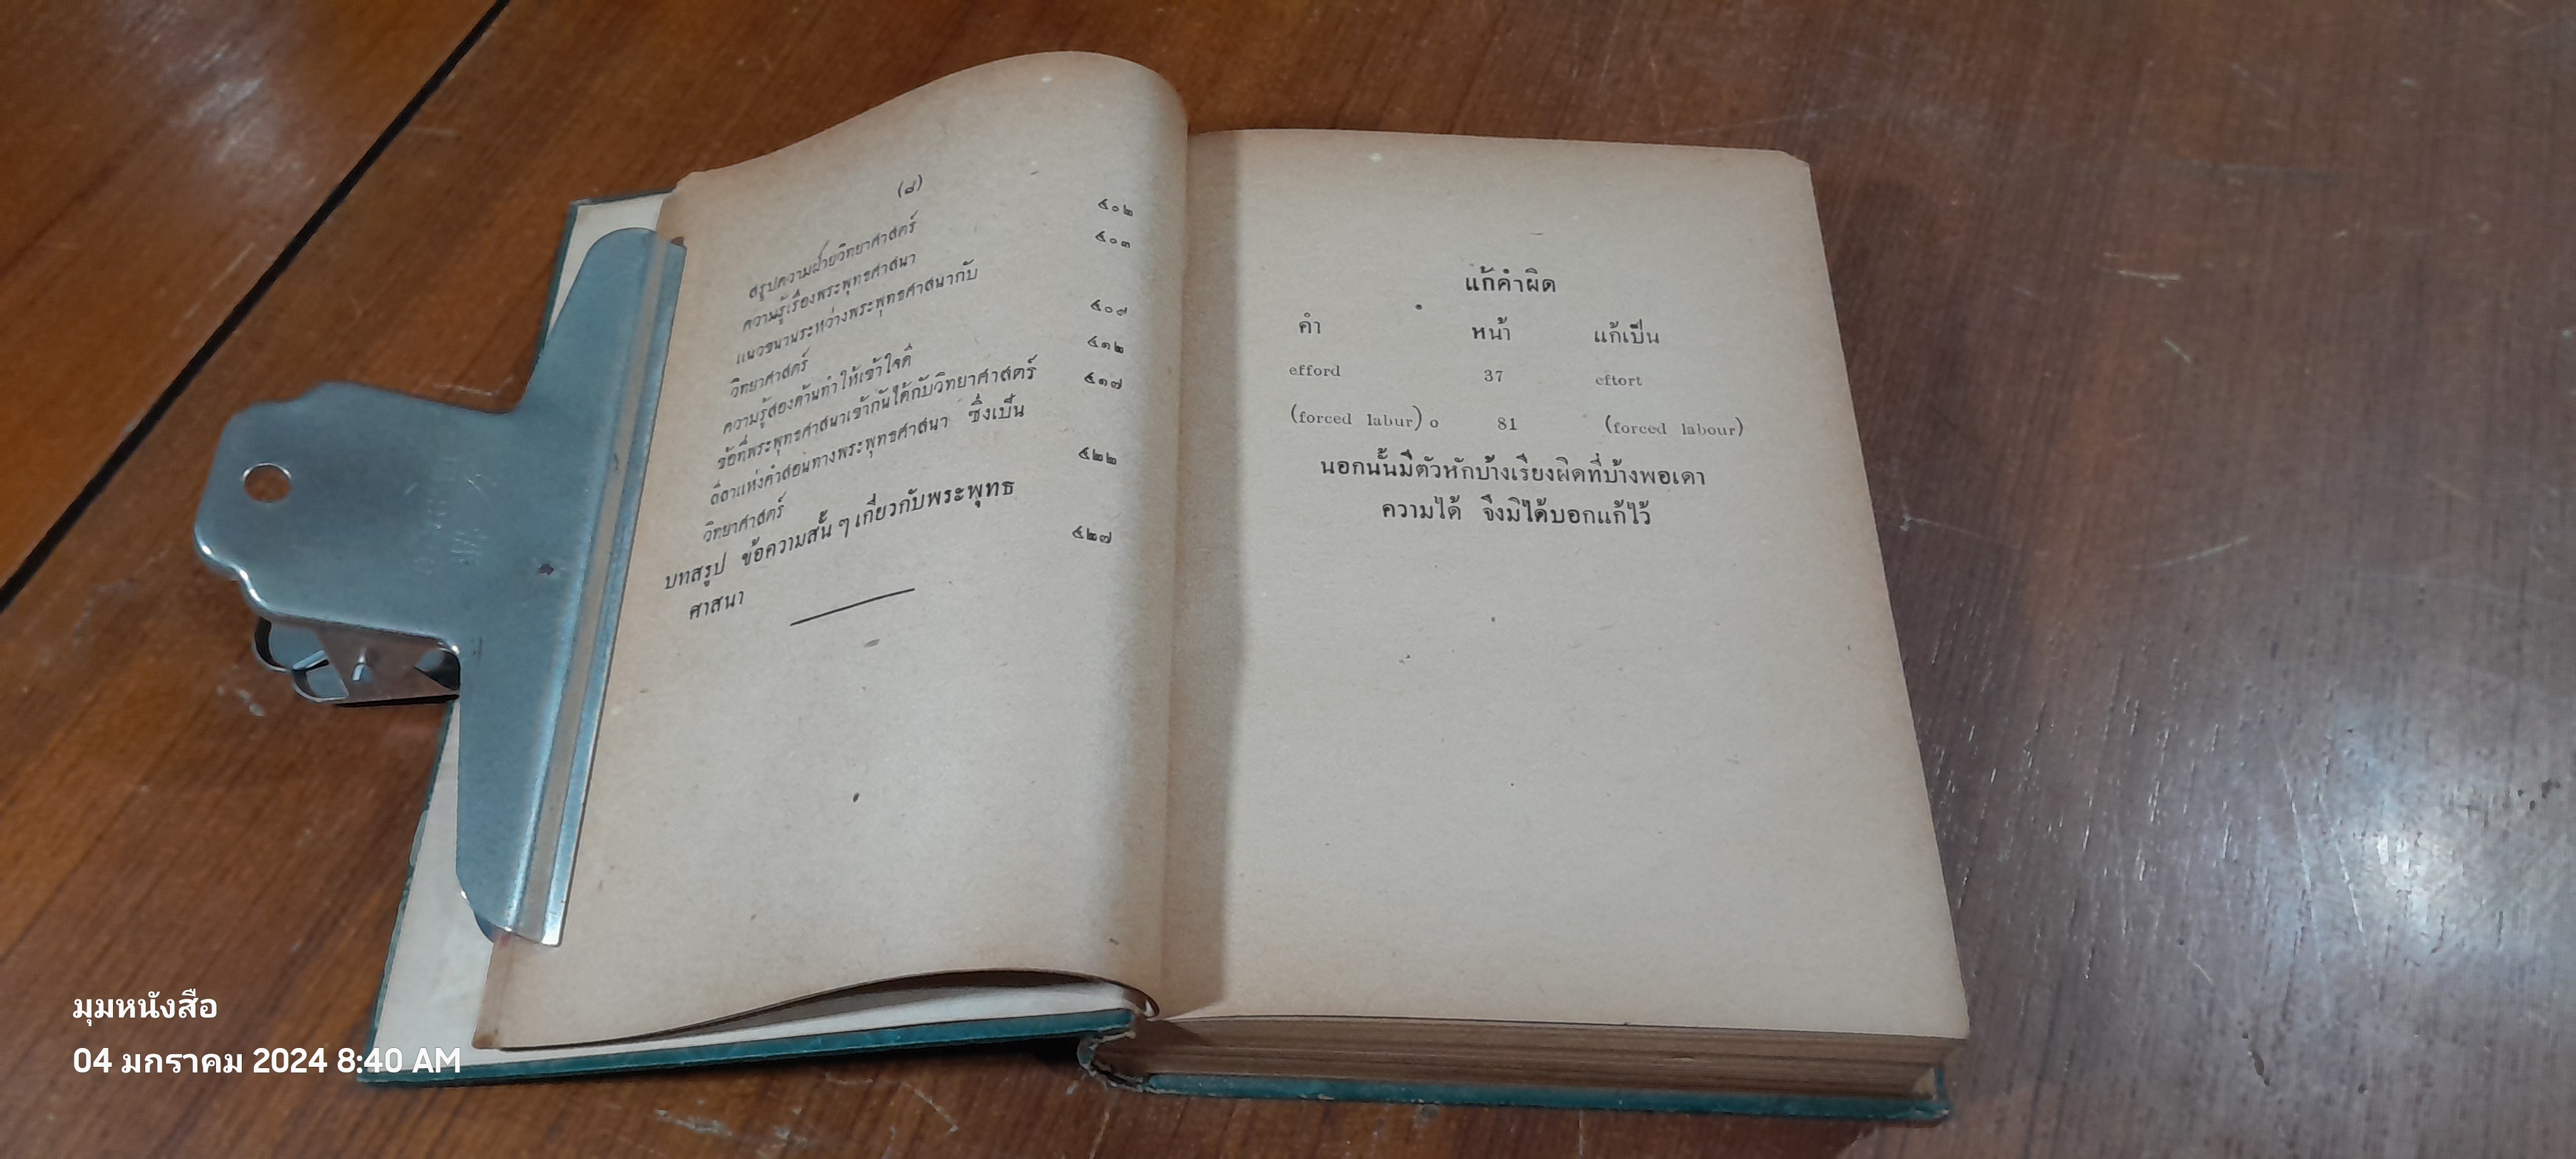 (๘)
สรุปความฝ่ายวิทยาศาสตร์ ๔๐๒
ความรู้เรื่องพระพุทธศาสนา ๔๐๓
แนวขนานระหว่างพระพุทธศาสนากับ
วิทยาศาสตร์ ๔๐๙
ความรู้สองด้านทำให้เข้าใจดี ๔๑๒
ข้อที่พระพุทธศาสนาเข้ากันได้กับวิทยาศาสตร์ ๔๑๗
ลีลาแห่งคำสอนทางพระพุทธศาสนา ซึ่งเป็น
วิทยาศาสตร์ ๔๒๒
บทสรุป ข้อความสั้น ๆ เกี่ยวกับพระพุทธ
ศาสนา ๔๒๗
แก้คำผิด
คำ หน้า แก้เป็น
efford 37 eftort
(forced labur) o 81 (forced labour)
นอกนั้นมีตัวหักบ้างเรียงผิดที่บ้างพอเดา
ความได้ จึงมิได้บอกแก้ไว้
มุมหนังสือ
04 มกราคม 2024 8:40 AM